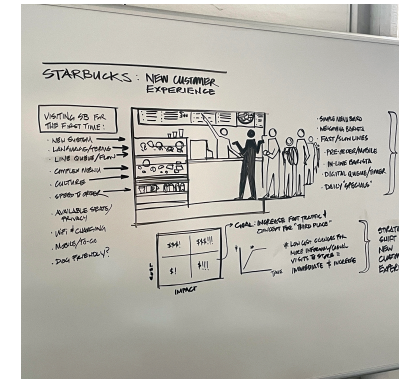 STARBUCKS: NEW CUSTOMER
EXPERIENCE
VISITING SB FOR
THE FIRST TIME:
· NEW SYSTEM
· LANGUAGE/TERMS
· LINE QUEUE/FLOW
· COMPLEX MENU
· CULTURE
· SPEED TO ORDER
· AVAILABLE SEATS/
PRIVACY
· WIFI & CHARGING
· MOBILE/TO-GO
· DOG FRIENDLY?
· SIMPLE MENU BOARD
· WELCOMING BARISTA
· FAST/SLOW LINES
· PRE-ORDER/MOBILE
· IN-LINE BARISTA
· DIGITAL QUEUE/TIMER
· DAILY "SPECIALS"
$$$!
$$$!!!
$!
$!!!
IMPACT
* GOAL: INCREASE FOOT TRAFFIC &
CONCEPT FOR "THIRD PLACE"
TIME
* LOW COST CHANGES FOR
MORE INFORMAL/CASUAL
VISITS TO STORE =
IMMEDIATE $ INCREASE
SHIFT
NEW